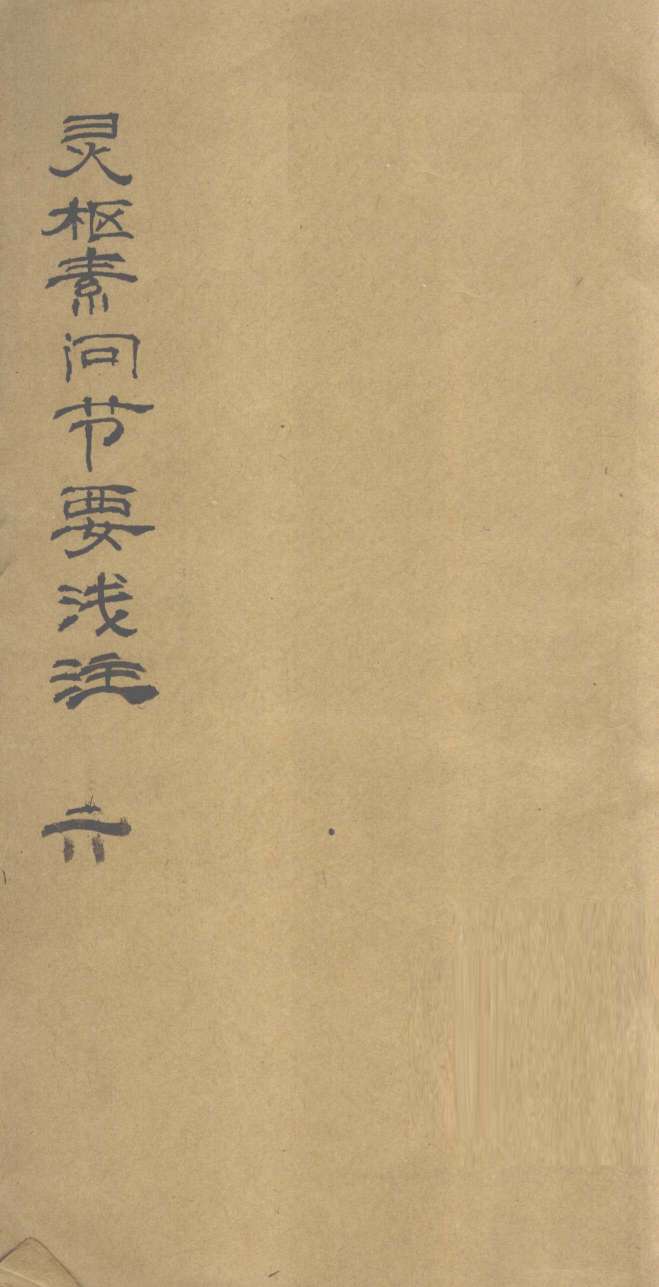 灵枢素问节要浅注
六